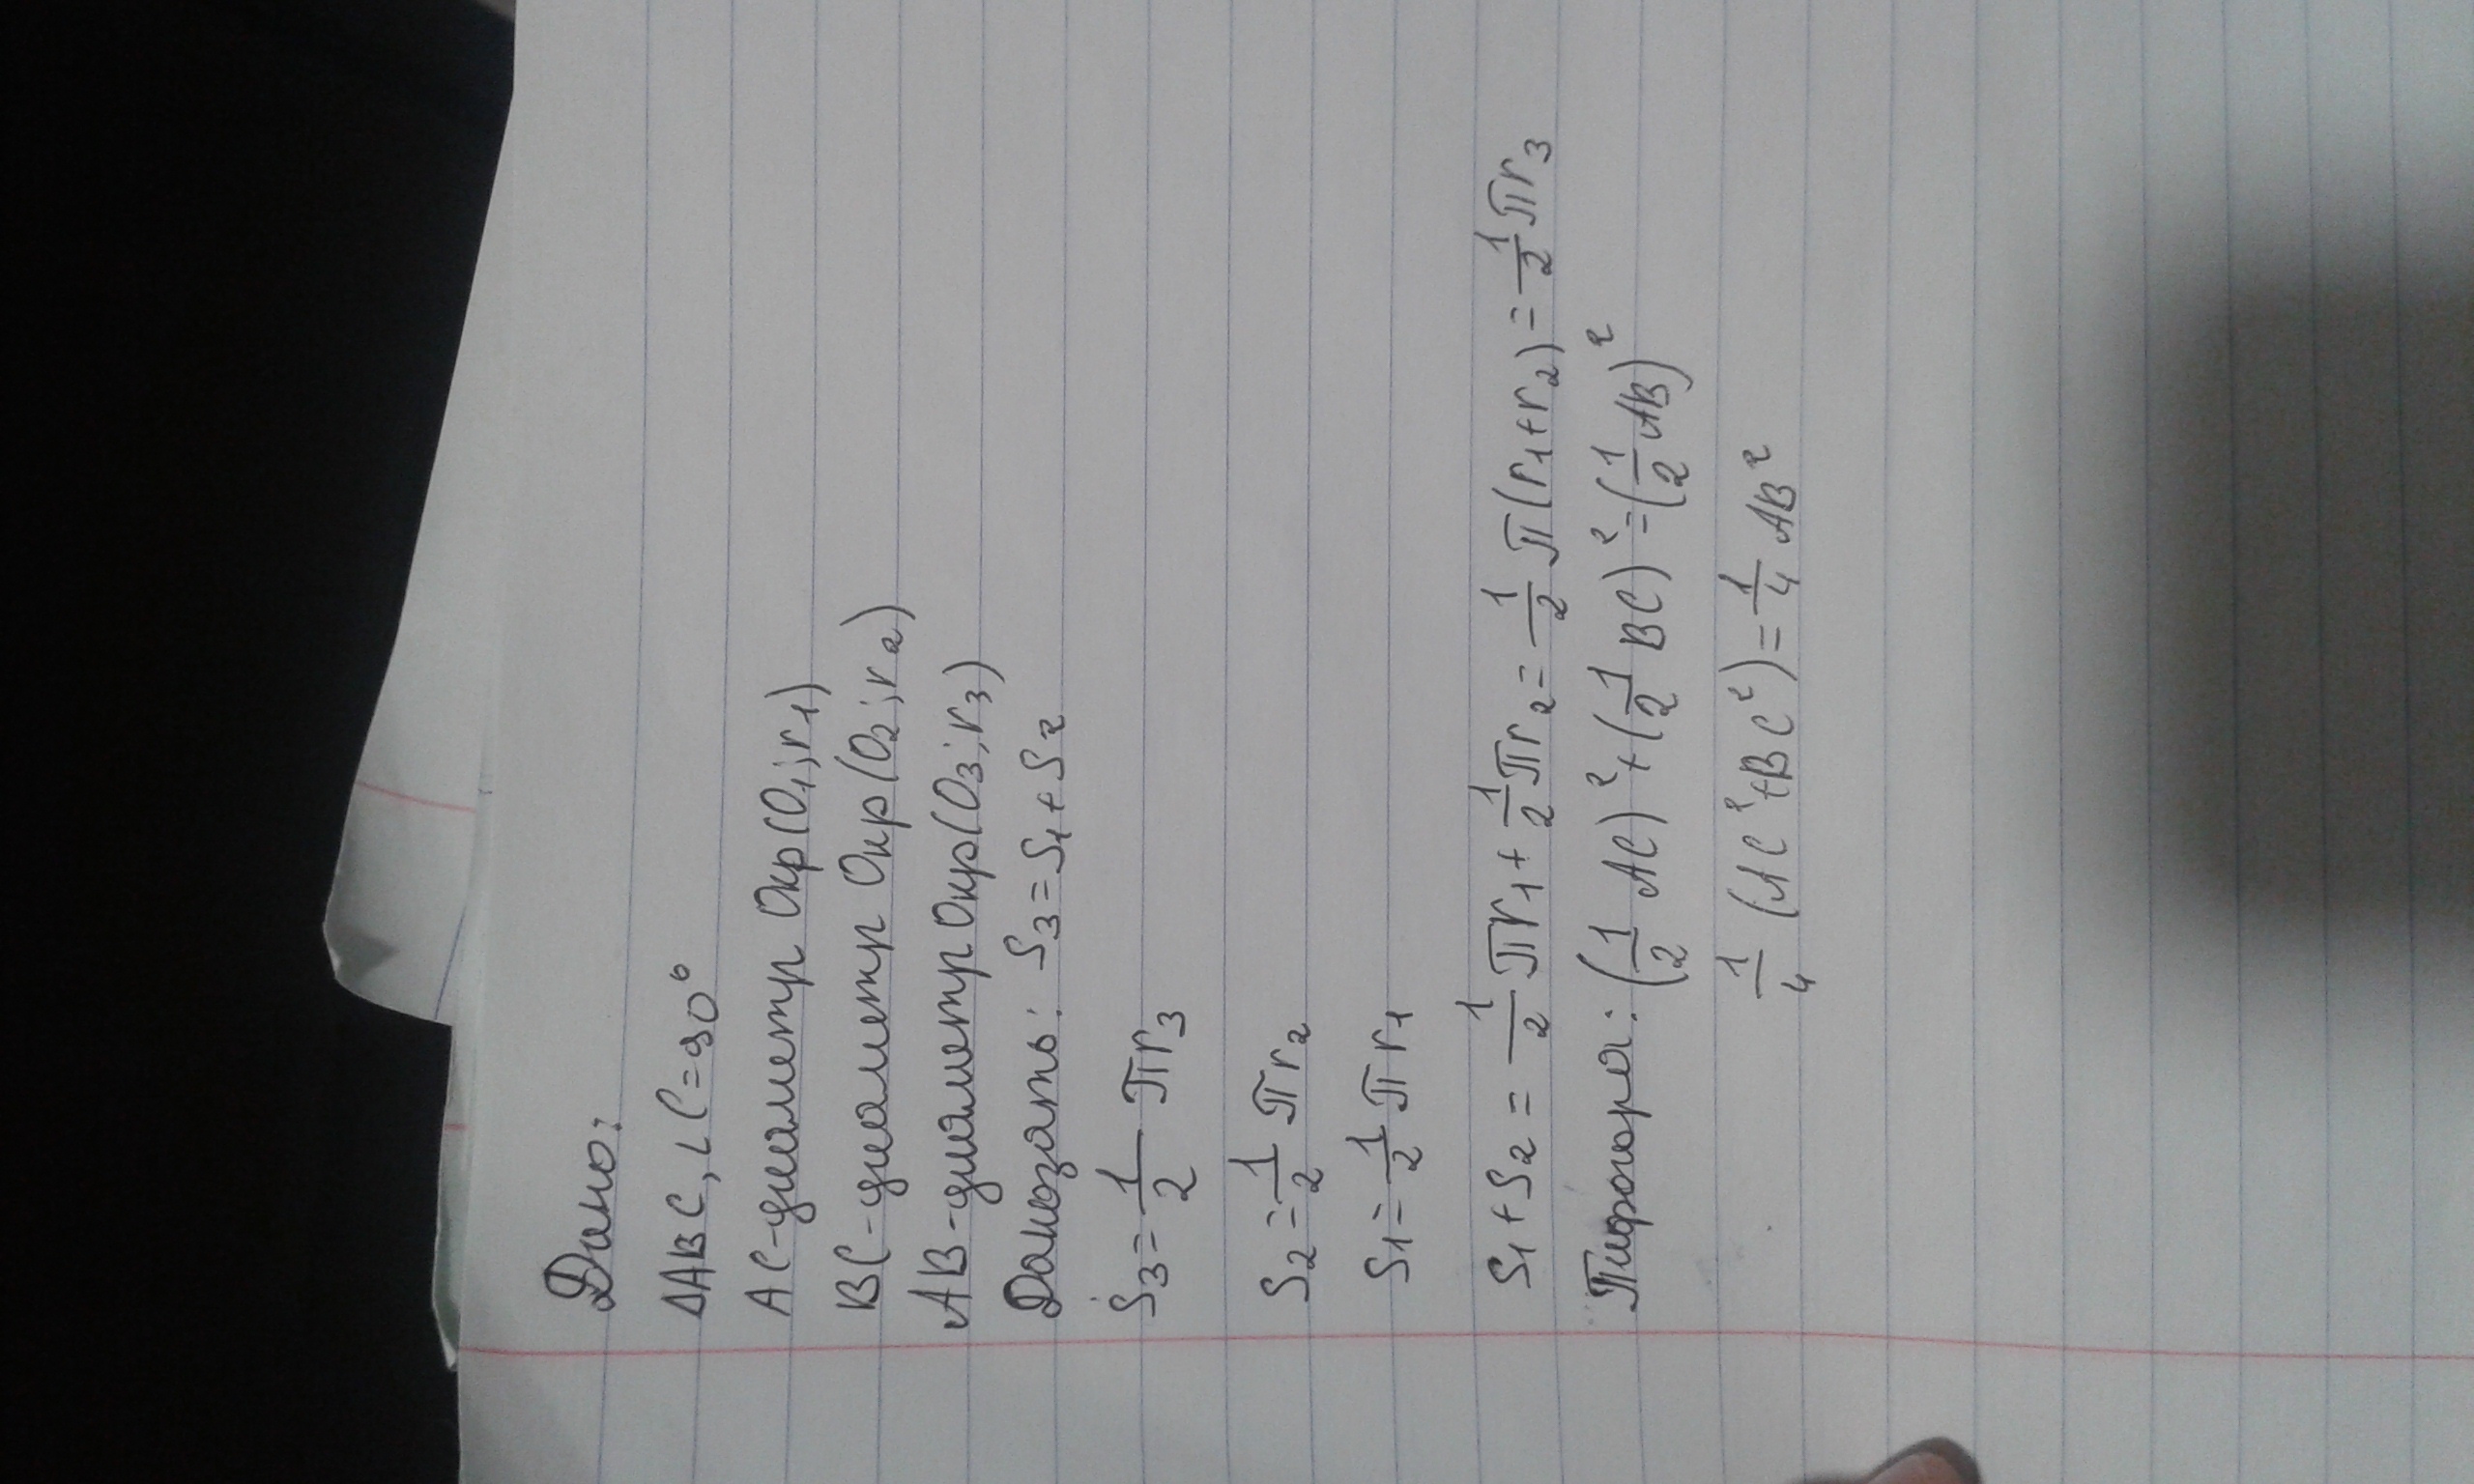 Дано:
ΔABC, ∟C=90°
AC-диаметр Окр(O₁;r₁)
BC-диаметр Окр(O₂;r₂)
AB-диаметр Окр(O₃;r₃)
Доказать: S₃=S₁+S₂
S₃=1/2 πr₃
S₂=1/2 πr₂
S₁=1/2 πr₁
S₁+S₂=1/2πr₁+1/2πr₂=1/2π(r₁+r₂)=1/2πr₃
Пифагорея: (1/2 AC)²+(1/2 BC)²=(1/2 AB)²
1/4 (AC²+BC²)=1/4 AB²